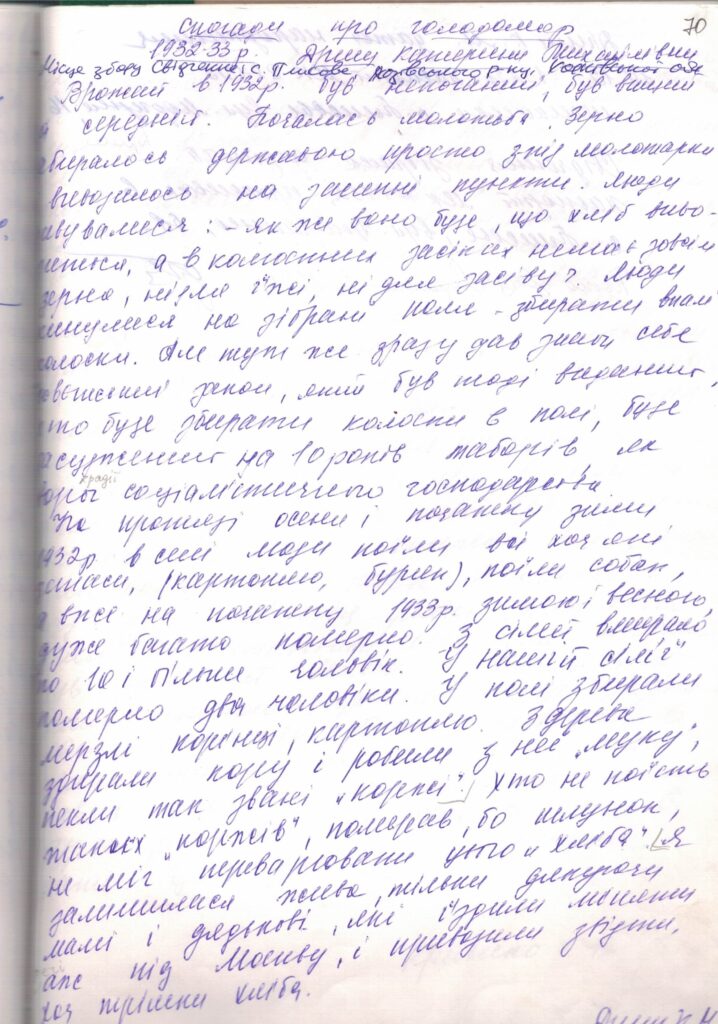 Спогади про голодомор 70
1932-33 р. Катерини Михайлівни
Місце збору свідчення: с.
Врожай в 1932р. був непоганий, був вищий
середній. Почалась молотьба. Зерно
биралось державою просто з під молотарки
вивозилось на засипні пункти. Люди
вувалися: - як же воно буде, що хліб виво-
зиться, а в колгоспних засіках немає зовсім
зерна, ні для їжі, ні для засіву? Люди
кинулися на зібрані поля - збирати
колоски. Але тут же зразу дав знати себе
закон, який був тоді виданий,
хто буде збирати колоски в полі, буде
засуджений на 10 років таборів, як
крадії
вори соціалістичного господарства
На протязі осени і початку зими
1932р в селі люди поїли всі хоч які
запаси, (картоплю, буряк), поїли собак,
а вже на початку 1933р. зимою і весною
дуже багато померло. З сімей вмирало
по 10 і більше чоловік. У нашій сім'ї
померло два чоловіки. У полі збирали
мерзлі корінці, картоплю. З дерева
збирали кору і робили з неї „муку",
пекли так звані „коржі". хто не поїсть
таких „коржів", помирав, бо шлунок,
не міг переварювати цього „хліба". Я
залишилася жива, тільки дякуючи
мамі і дядькові, які їздили міняти
аж під Москву, і привозили звідти,
хоч трішки хліба.